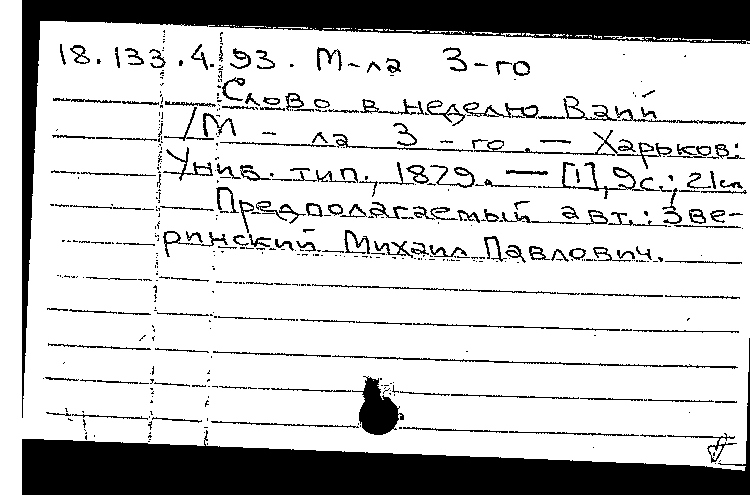 18.133.4.93. М-ла 3-го
Слово в неделю Ваий
/М - ла 3 - го. — Харьков:
Унив. тип., 1879. — [1], 9с.; 21см.
Предполагаемый авт.: Зве-
ринский Михаил Павлович.